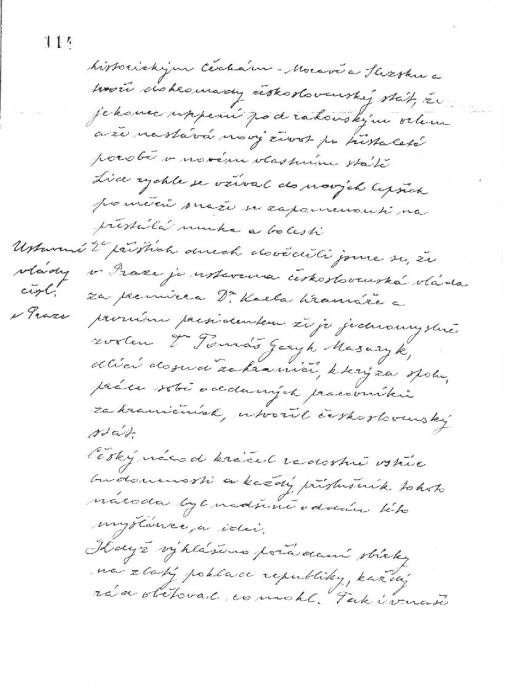 114
historickým Čechám - Moravě a Slezsku a
tvoří dohromady československý stát, že
je konec úpění pod rakouským orlem
a že nastává nový život po třistaleté
porobě v novém vlastním státě
Lid rychle se vžíval do nových lepších
poměrů snaže se zapomenouti na
přestálá muka a bolesti
Ustavení
vlády
čsl.
v Praze
V příštích dnech dověděli jsme se, že
v Praze je ustavena československá vláda
za premiera Dr. Karla Kramáře a
prvním presidentem že je jednomyslně
zvolen Tomáš Garyk Masaryk,
dlící dosud zahraničí, který za spolu,
práce sobě oddaných pracovníků
zahraničních, utvořil československý
stát.
Český národ kráčel radostně vstříc
budoucnosti a každý příslušník tohoto
národa byl nadšeně oddán této
myšlénce, a idei.
Když vyhlášeno pořádání sbírky
na zlatý poklad republiky, každý
rád obětoval co mohl. Tak i v naší